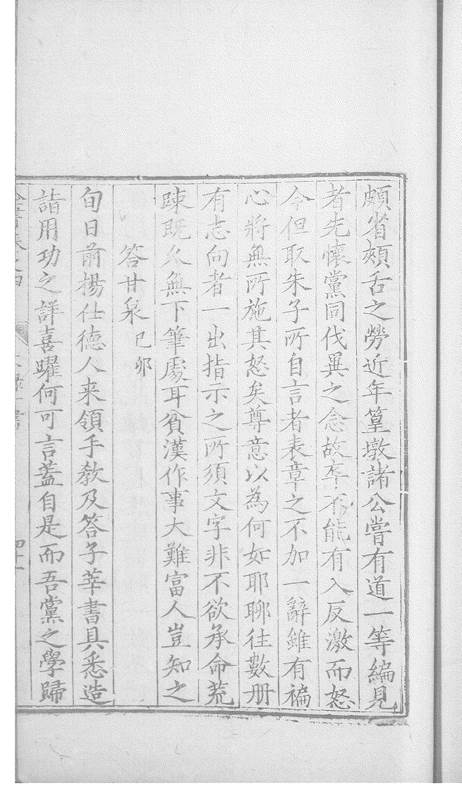 頗省頰舌之勞近年篁墩諸公嘗有道一等編見
者先懷黨同伐異之念故卒不能有入反激而怒
今但取朱子所自言者表章之不加一辭雖有褊
心將無所施其怒矣尊意以為何如耶聊往數册
有志向者一出指示之所須文字非不欲承命荒
踈既久無下筆處耳貧漢作事大難富人豈知之
答甘泉 己卯
旬日前楊仕德人来領手敎及答子莘書具悉造
詣用功之詳喜躍何可言蓋自是而吾黨之學歸